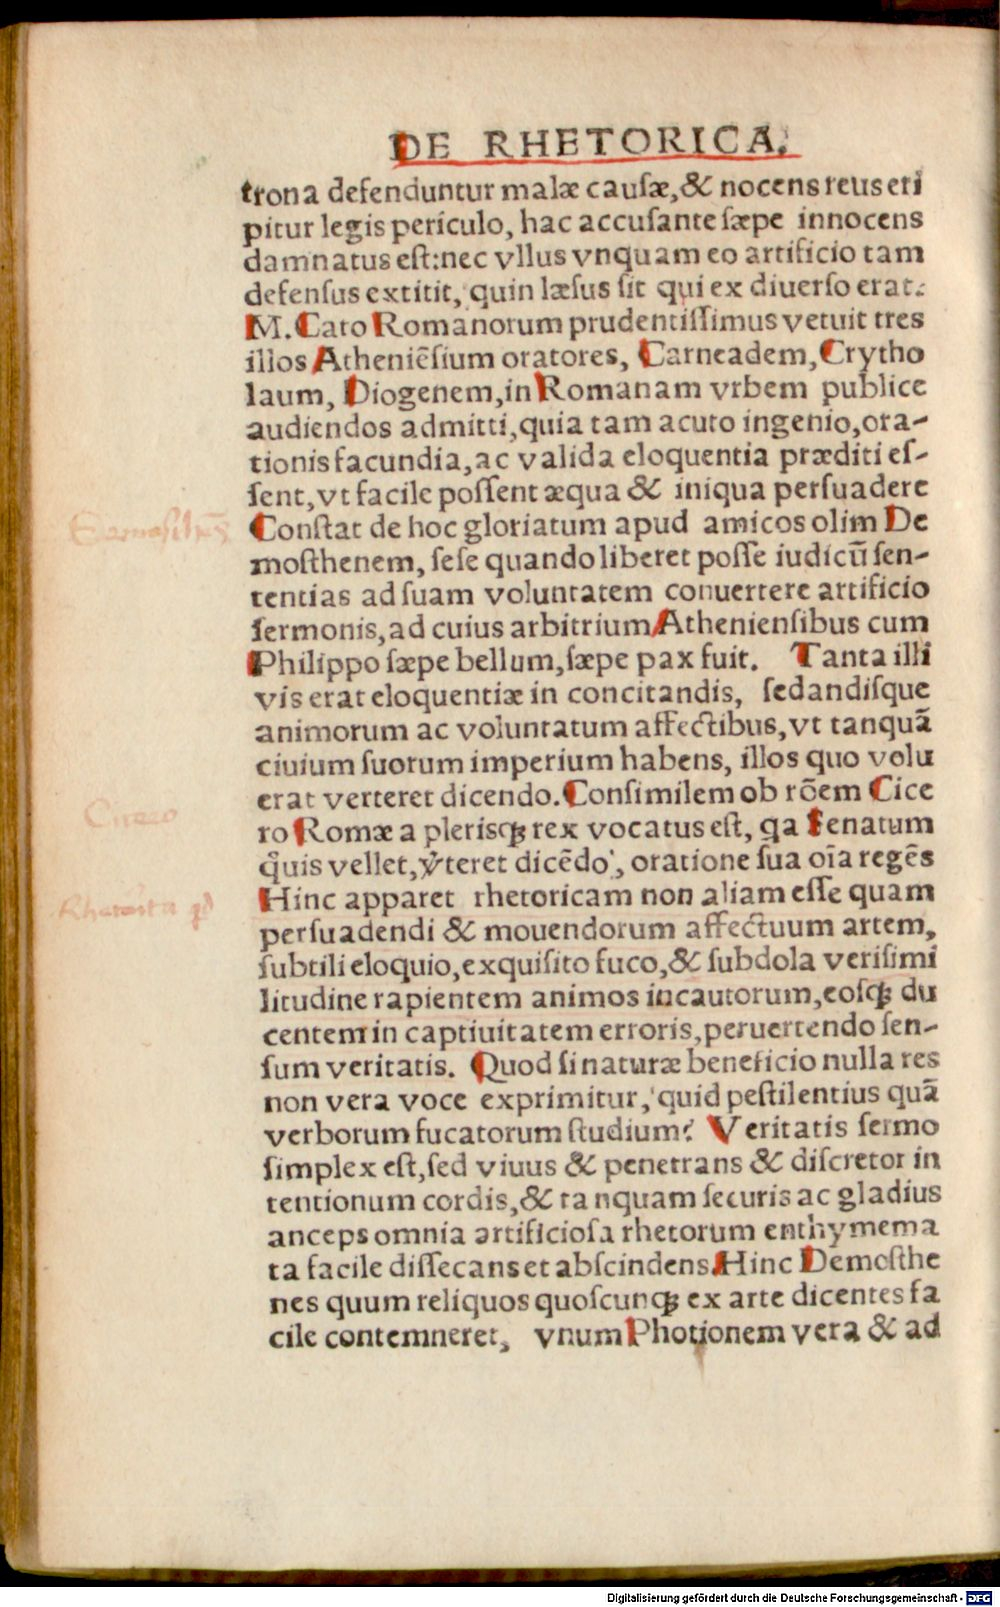 DE RHETORICA.
trona defenduntur malæ cauſæ, & nocens reus eri
pitur legis periculo, hac accuſante ſæpe innocens
damnatus eſt: nec vllus vnquam eo artificio tam
defenſus extitit, quin læſus ſit qui ex diuerſo erat.
M. Cato Romanorum prudentiſſimus vetuit tres
illos Atheniēſium oratores, Carneadem, Crytho
laum, Diogenem, in Romanam vrbem publice
audiendos admitti, quia tam acuto ingenio, ora-
tionis facundia, ac valida eloquentia præditi eſ-
ſent, vt facile poſſent æqua & iniqua perſuadere
Conſtat de hoc gloriatum apud amicos olim De
moſthenem, ſeſe quando liberet poſſe iudicū ſen-
tentias ad ſuam voluntatem conuertere artificio
ſermonis, ad cuius arbitrium Athenienſibus cum
Philippo ſæpe bellum, ſæpe pax fuit. Tanta illi
vis erat eloquentiæ in concitandis, ſedandiſque
animorum ac voluntatum affectibus, vt tanquā
ciuium ſuorum imperium habens, illos quo volu
erat verteret dicendo. Conſimilem ob rōem Cice
Cicero
ro Romæ a pleriſqꝫ rex vocatus eſt, qa ſenatum
quis vellet, v̓teret dicēdo, oratione ſua oīa regēs
Hinc apparet rhetoricam non aliam eſſe quam
Rhetorica qd
perſuadendi & mouendorum affectuum artem,
ſubtili eloquio, exquiſito fuco, & ſubdola veriſimi
litudine rapientem animos incautorum, eoſqꝫ du
centem in captiuitatem erroris, peruertendo ſen-
ſum veritatis. Quod ſi naturæ beneficio nulla res
non vera voce exprimitur, quid peſtilentius quā
verborum fucatorum ſtudium? Veritatis ſermo
ſimplex eſt, ſed viuus & penetrans & diſcretor in
tentionum cordis, & tanquam ſecuris ac gladius
anceps omnia artificioſa rhetorum enthymema
ta facile diſſecans et abſcindens Hinc Demoſthe
nes quum reliquos quoſcunqꝫ ex arte dicentes fa
cile contemneret, vnum Photionem vera & ad
Digitalisierung gefördert durch die Deutsche Forschungsgemeinschaft - DFG